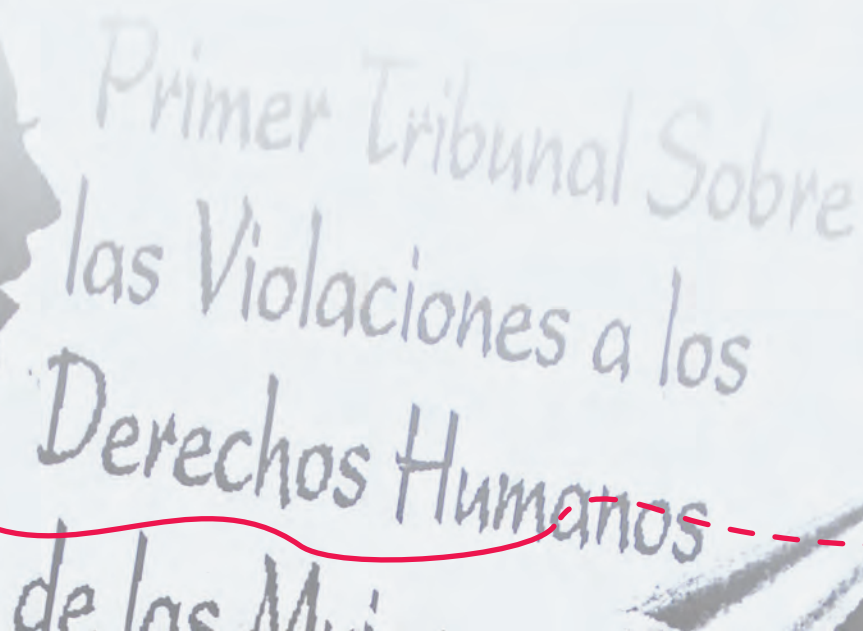 Primer Tribunal Sobre
las Violaciones a los
Derechos Humanos
de las